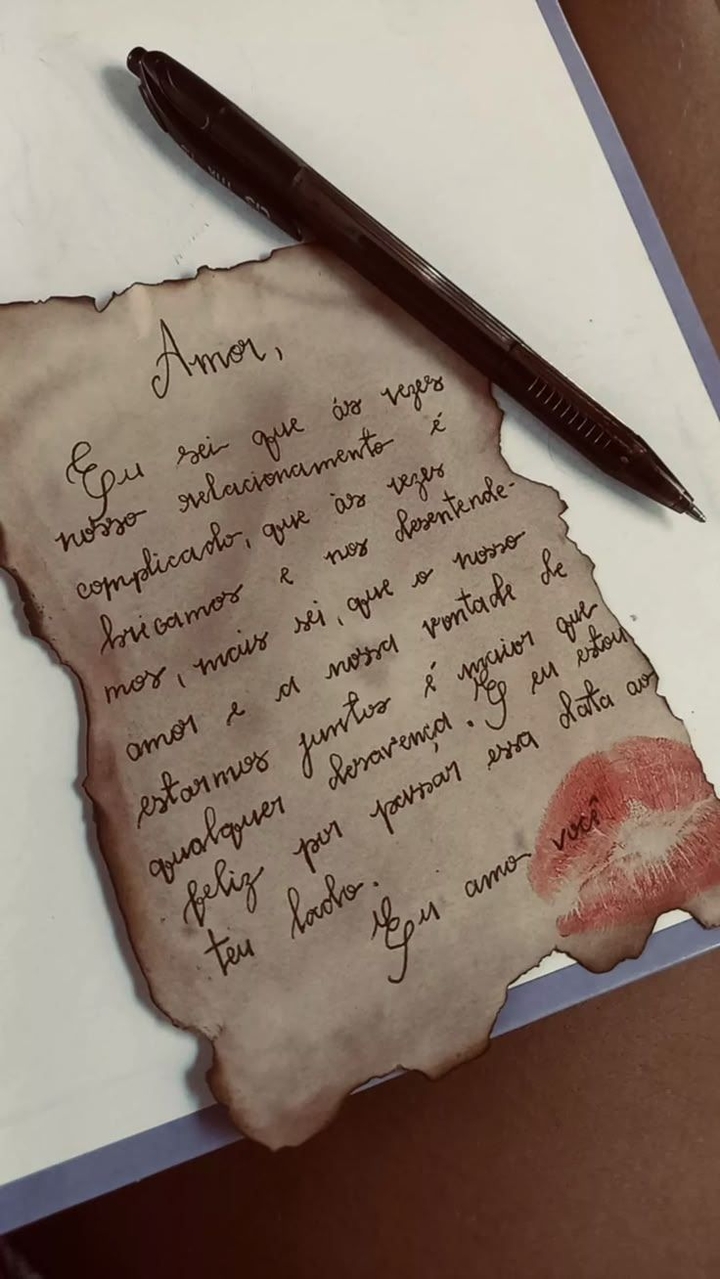 Amor,
Eu sei que ás vezes
nosso relacionamento é
complicado, que às vezes
bricamos e nos desentende-
mos, mais sei, que o nosso
amor e a nossa vontade de
estarmos juntos é maior que
qualquer desavença. E eu estou
feliz por passar essa data ao
teu lado.
Eu amo você